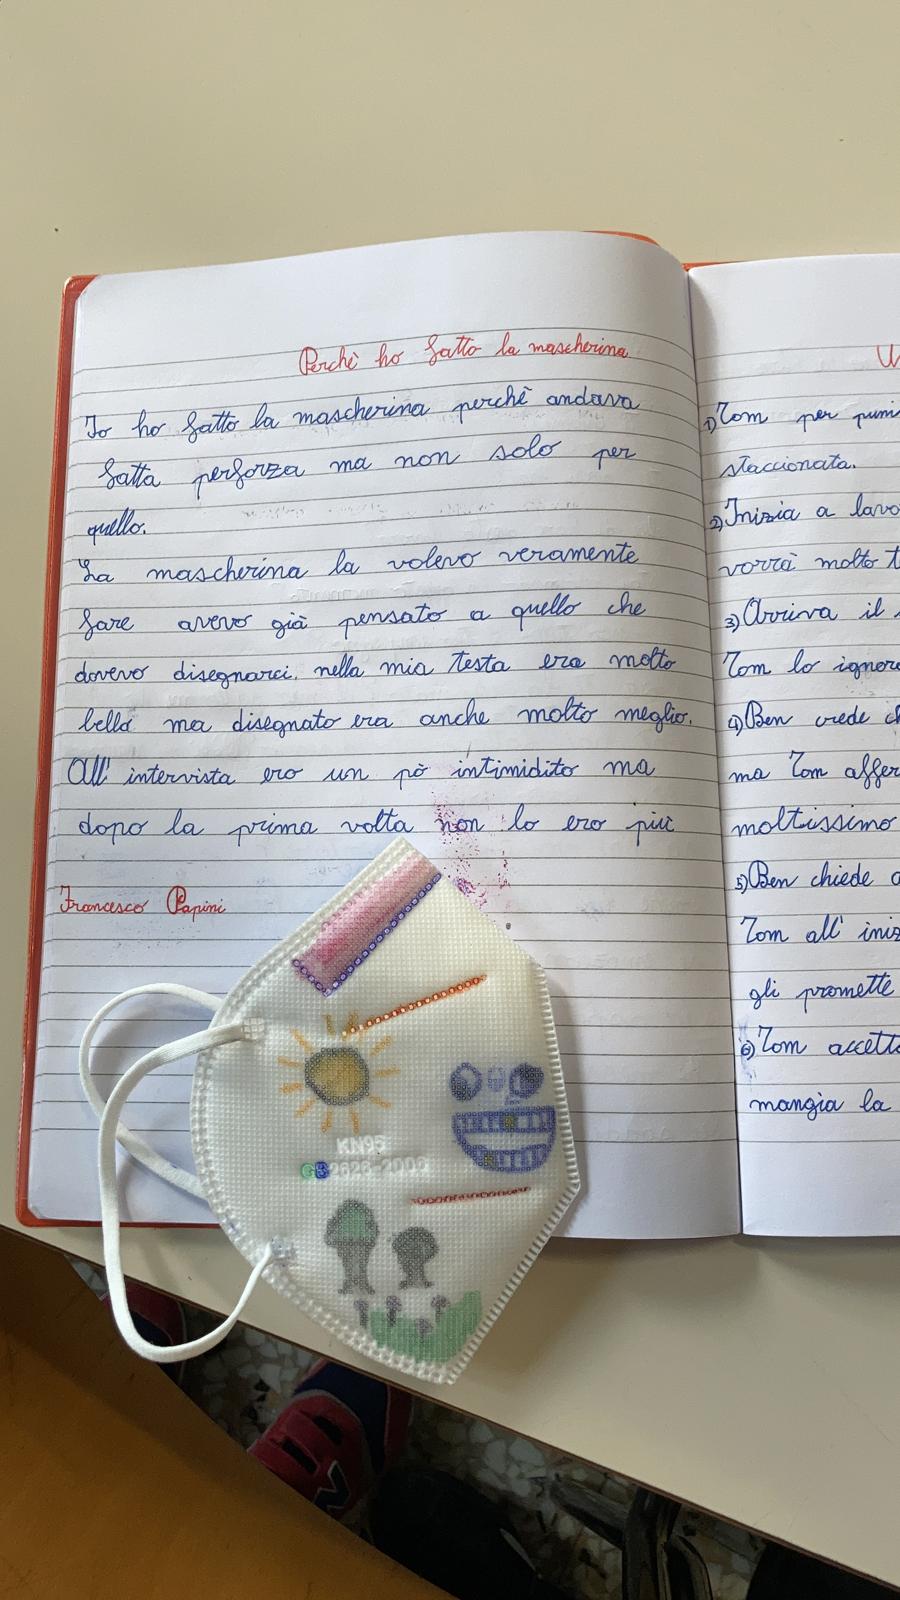 Perchè ho fatto la mascherina
Io ho fatto la mascherina perchè andava
fatta perforza ma non solo per
quello.
La mascherina la volevo veramente
fare avevo già pensato a quello che
dovevo disegnarci, nella mia testa era molto
bella ma disegnato era anche molto meglio.
All' intervista ero un pò intimidito ma
dopo la prima volta non lo ero più
Francesco Papini
KN95
GB2626-2006
1) Tom per puni
staccionata.
2) Inizia a lavo
vorrà molto t
3) Arriva il
Tom lo ignor
4) Ben crede ch
ma Tom affer
moltissimo
5) Ben chiede a
Tom all' iniz
gli promette
6) Tom accett
mangia la